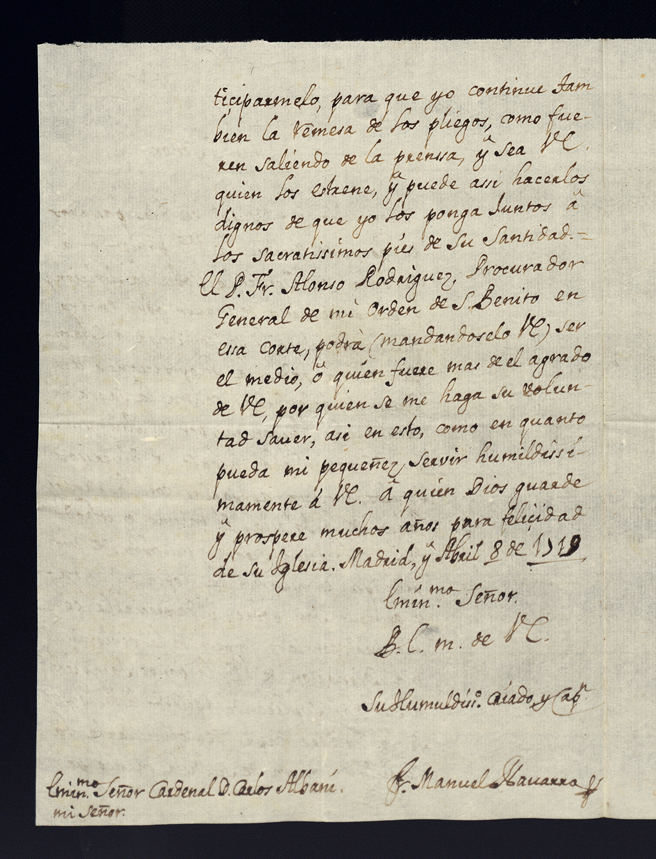 ticiparmelo, para que yo continue tam
bien la remesa de los pliegos, como fue-
ren saliendo de la prenssa, ÿ sea VE.
quien los estrene, ÿ puede assi hacerlos
dignos de que yo los ponga Juntos â
los sacratissimos pies de su Santidad.=
El P. Fr. Alonso Rodriguez, Procurador
General de mi Orden de S. Benito en
essa Corte, podrà (mandandoselo VE) ser
el medio, ô quien fuere mas de el agrado
de VE, por quien se me haga su volun-
tad sauer, asi en esto, como en quanto
pueda mi pequeñez, servir humildissi-
mamente á VE. â quien Dios guarde
ÿ prospere muchos años para felicidad
de su Iglesia. Madrid, ÿ Abril 8 de 1719
Emin.mo Señor.
B. L. m. de VE.
Su Humildis.o Criado, y Cap.n
Emin.mo Señor Cardenal D. Carlos Albani.
mi Señor.
Fr. Manuel Navarro